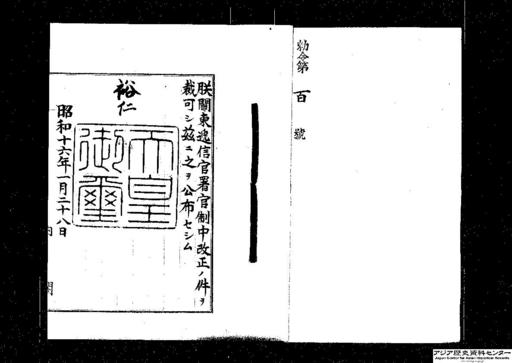 勅令第百號
朕關東遞信官署官制中改正ノ件ヲ
裁可シ茲ニ之ヲ公布セシム
裕仁
天皇御璽
昭和十六年一月二十八日
内閣
アジア歴史資料センター
Japan Center for Asian Historical Records